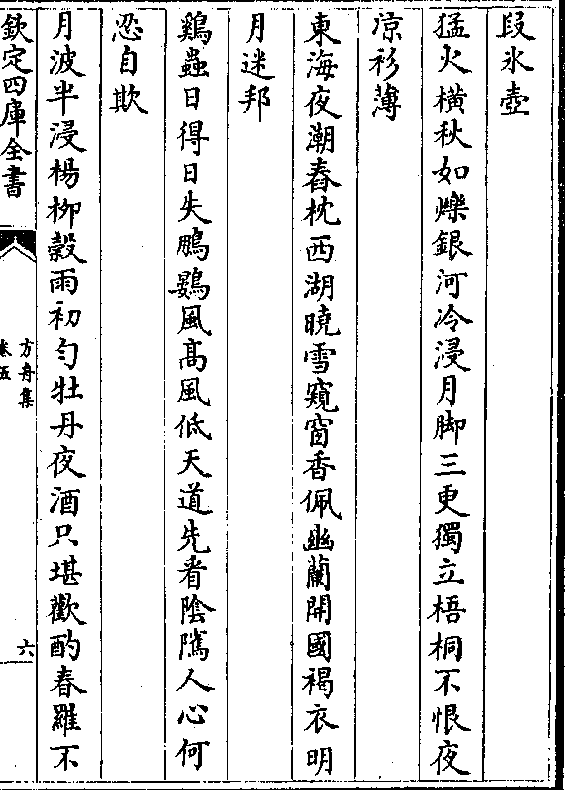 段氷壺
猛火橫秋如爍銀河冷浸月脚三更獨立梧桐不恨夜
涼衫薄
東海夜潮舂枕西湖曉雪窺窗香佩幽蘭開國褐衣明
月迷邦
鷄蟲日得日失鵬鷃風髙風低天道先看陰隲人心何
忍自欺
月波半浸楊柳穀雨初勻牡丹夜酒只堪歡酌春羅不
欽定四庫全書
方舟集
卷五
六